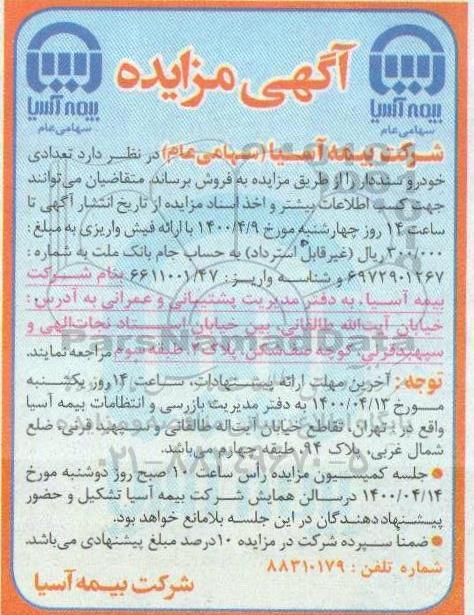 آگهی مزایده
بیمه آسیا
سهامی عام
بیمه آسیا
سهامی عام
شرکت بیمه آسیا (سهامی عام) در نظر دارد تعدادی
خودرو سنددار را از طریق مزایده به فروش برساند. متقاضیان می‌توانند
جهت کسب اطلاعات بیشتر و اخذ اسناد مزایده از تاریخ انتشار آگهی تا
ساعت ۱۴ روز چهارشنبه مورخ ۱۴۰۰/۴/۹ با ارائه فیش واریزی به مبلغ :
۳۰۰/۰۰۰ ریال (غیرقابل استرداد) به حساب جام بانک ملت به شماره :
۶۹۷۲۹۰۱۲۶۷ و شناسه واریز : ۶۶۱۱۰۰۱/۴۷ بنام شرکت
بیمه آسیا، به دفتر مدیریت پشتیبانی و عمرانی به آدرس :
خیابان آیت‌الله طالقانی، بین خیابان استاد نجات‌الهی و
سپهبدقرنی، کوچه صف‌شکن، پلاک ۲، طبقه سوم مراجعه نمایند.
ParsNamadData
توجه : آخرین مهلت ارائه پیشنهادات، ساعت ۱۴ روز یکشنبه
مورخ ۱۴۰۰/۰۴/۱۳ به دفتر مدیریت بازرسی و انتظامات بیمه آسیا
واقع در : تهران، تقاطع خیابان آیت‌اله طالقانی و سپهبد قرنی، ضلع
شمال غربی، پلاک ۹۴، طبقه چهارم می‌باشد.
۰۲۱-۸۸۳۴۹۶۷۰-۵
● جلسه کمیسیون مزایده رأس ساعت ۱۰ صبح روز دوشنبه مورخ
۱۴۰۰/۰۴/۱۴ در سالن همایش شرکت بیمه آسیا تشکیل و حضور
پیشنهاد دهندگان در این جلسه بلامانع خواهد بود.
● ضمناً سپرده شرکت در مزایده ۱۰ درصد مبلغ پیشنهادی می‌باشد.
شماره تلفن : ۸۸۳۱۰۱۷۹
شرکت بیمه آسیا